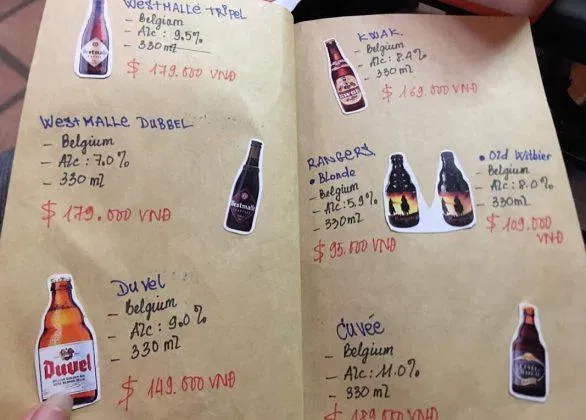 WESTMALLE TRIPEL
- Belgium
- Alc: 9.5%
- 330 ml
$ 179.000 VNĐ
WESTMALLE DUBBEL
- Belgium
- Alc: 7.0%
- 330 ml
$ 179.000 VNĐ
Westmalle
DUVEL
- Belgium
- Alc: 9.0%
- 330 ml
$ 149.000 VNĐ
Duvel
KWAK
- Belgium
- Alc: 8.4%
- 330 ml
$ 169.000 VNĐ
KWAK
RANGERS
• Blonde
- Belgium
- Alc: 5.9%
- 330 ml
$ 95.000 VNĐ
• Old Witbier
- Belgium
- Alc: 8.0%
- 330 ml
$ 109.000
VNĐ
CUVÉE
- Belgium
- Alc: 11.0%
- 330 ml
$ 189.000 VNĐ